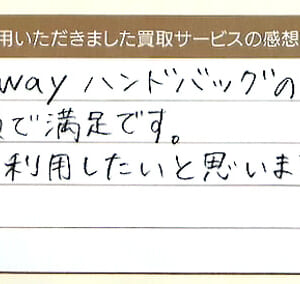 用いただきました買取サービスの感想
way ハンドバッグの
で満足です。
利用したいと思いま